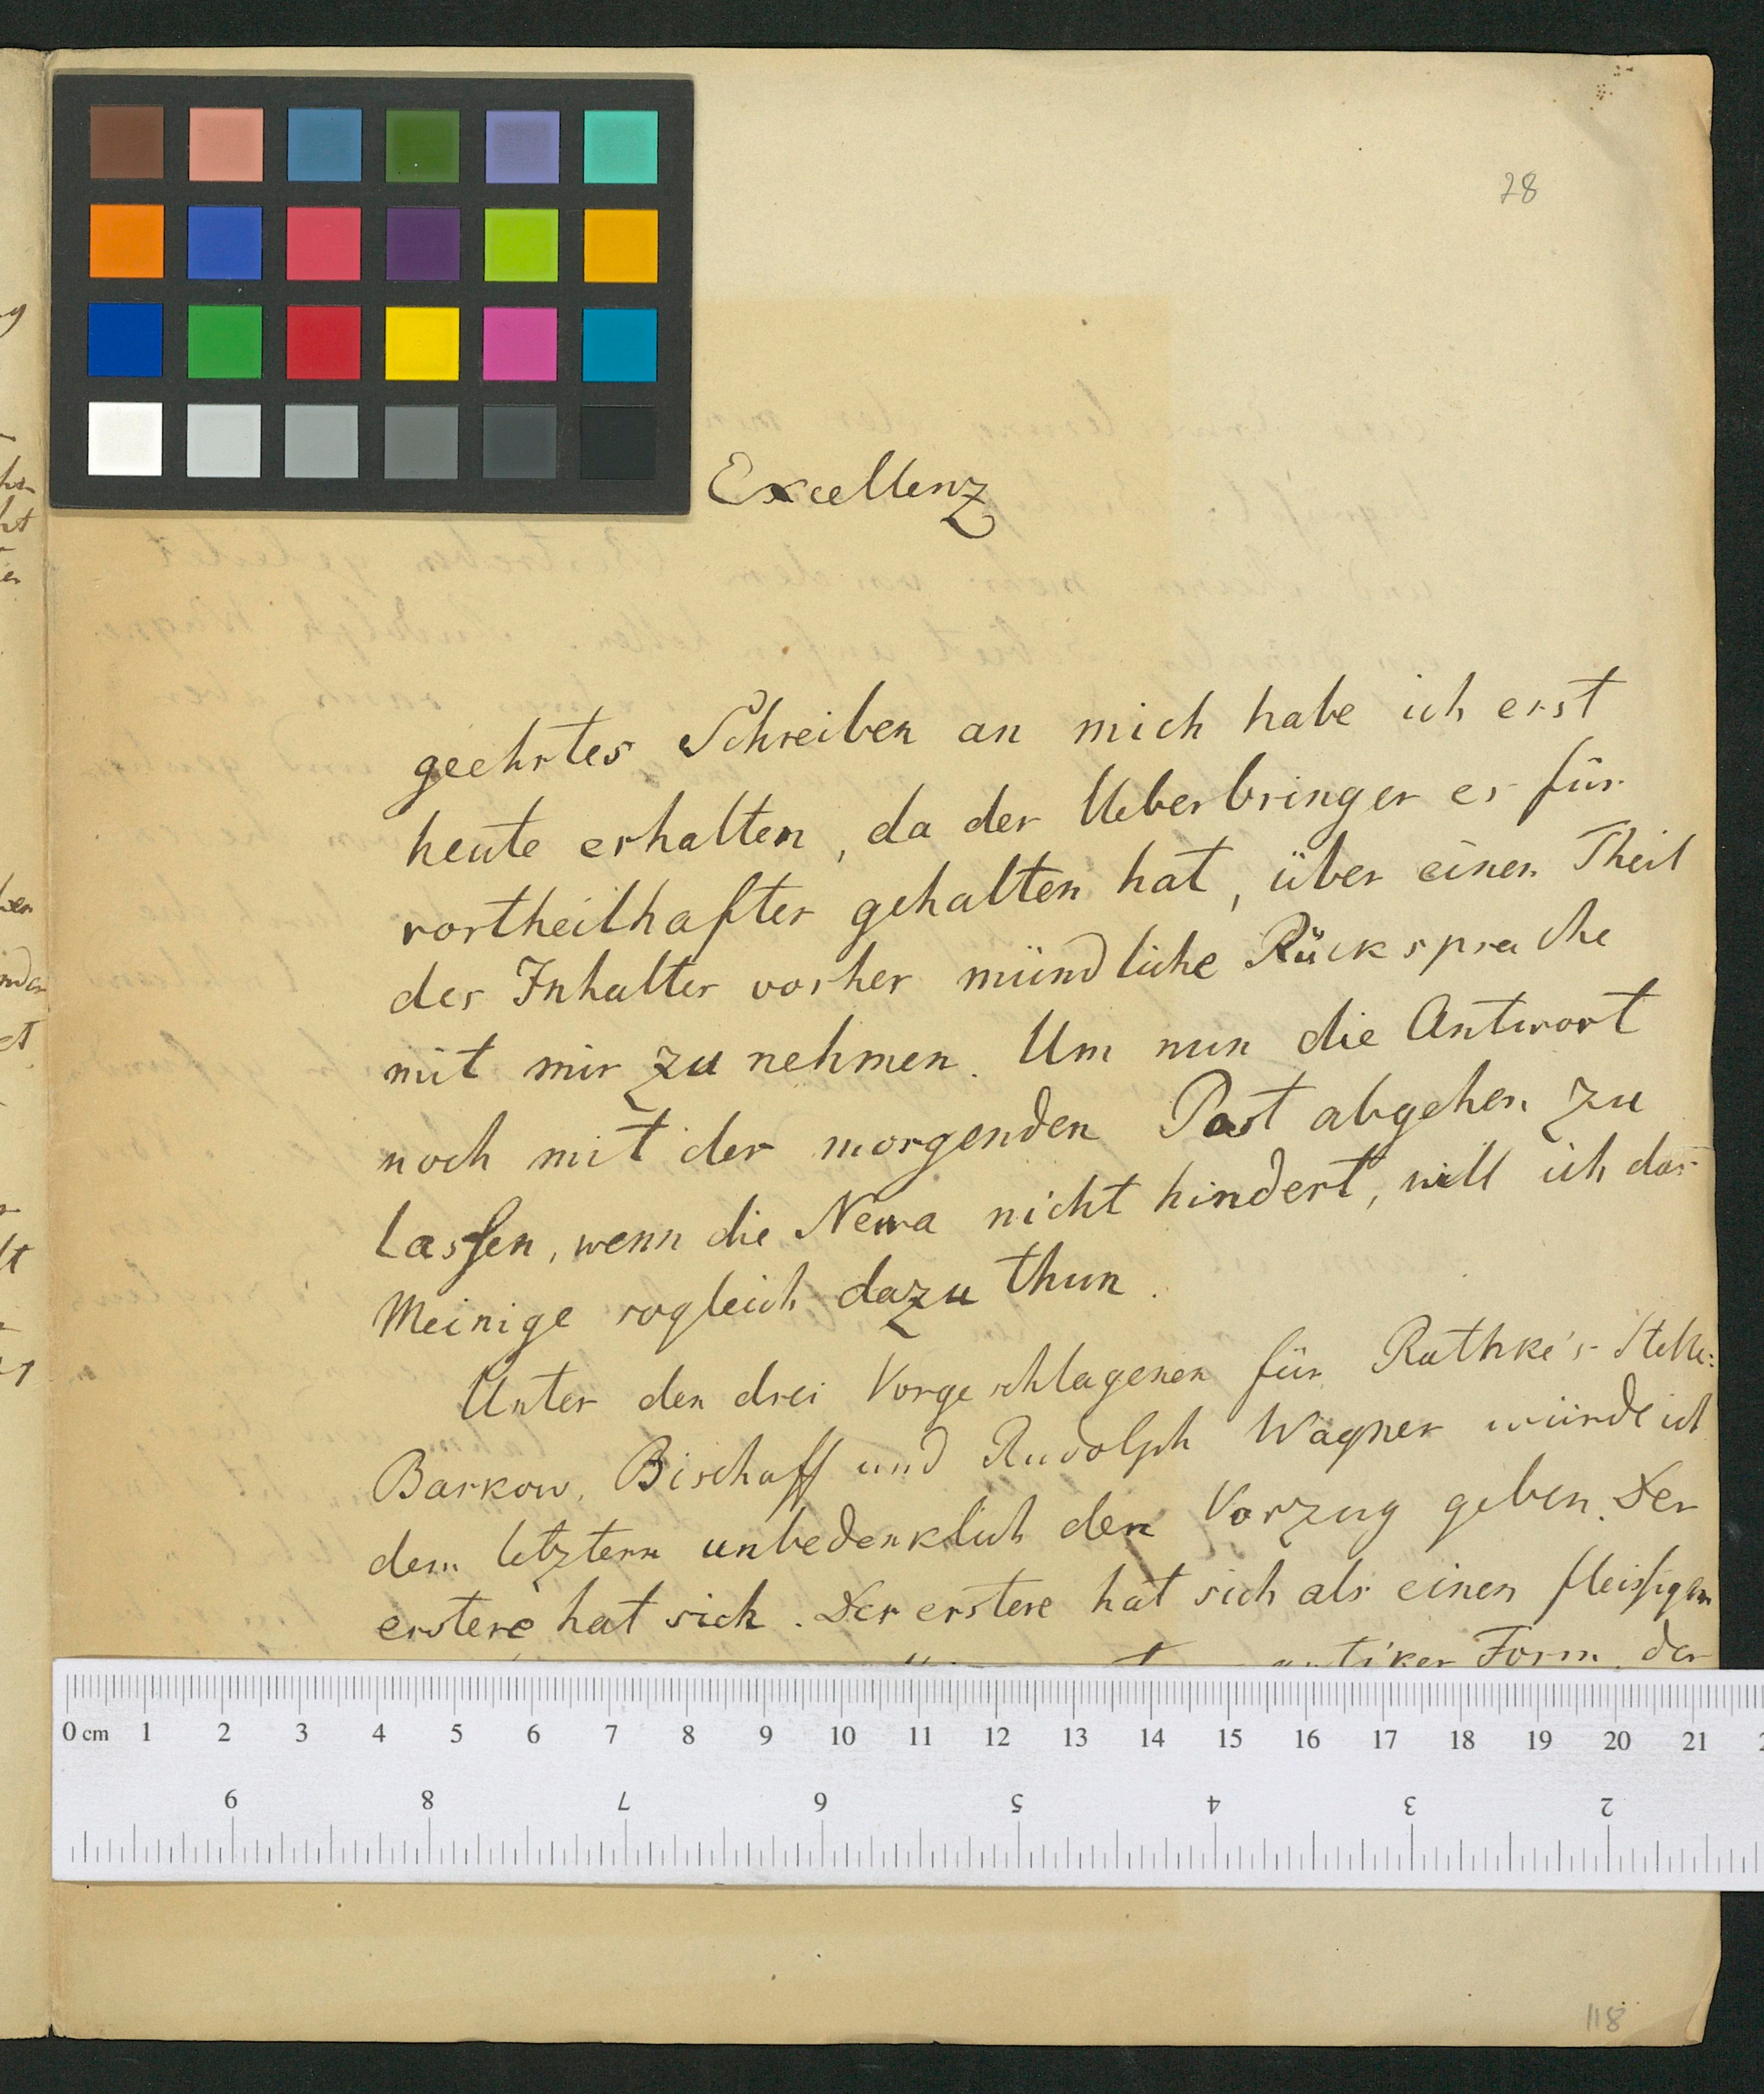 28
Excellenz
geehrtes Schreiben an mich habe ich erst
heute erhalten, da der Ueberbringer es für
vortheilhafter gehalten hat, über einen Theil
des Inhaltes vorher mündliche Rücksprache
mit mir zu nehmen. Um nun die Antwort
noch mit der morgenden Post abgehen zu
lassen, wenn die Newa nicht hindert, will ich das
Meinige sogleich dazu thun.
Unter den drei Vorgeschlagenen für Rathke's Stelle:
Barkow, Bischoff und Rudolph Wagner würde ich
dem letztern unbedenklich den Vorzug geben. Der
erstere hat sich. Der erstere hat sich als einen fleissigen
antiker Form, der
0 cm 1 2 3 4 5 6 7 8 9 10 11 12 13 14 15 16 17 18 19 20 21
9 8 7 6 5 4 3 2
118